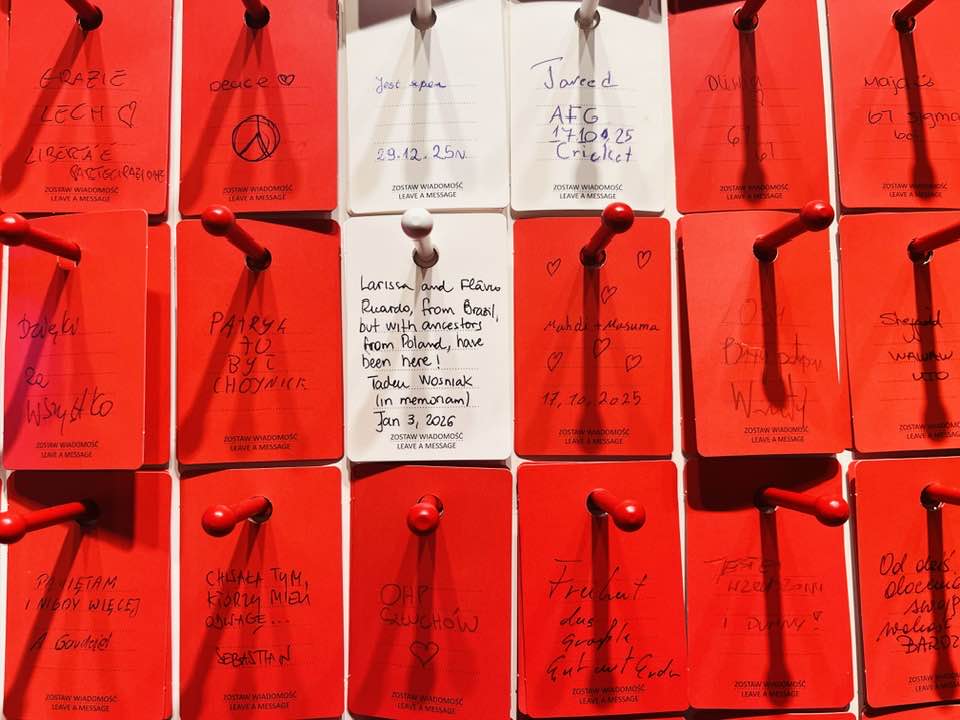 GRAZIE
LECH
LIBERTÀ È
PARTECIPAZIONE
ZOSTAW WIADOMOŚĆ
LEAVE A MESSAGE
peace
ZOSTAW WIADOMOŚĆ
LEAVE A MESSAGE
Jest
29.12.25
ZOSTAW WIADOMOŚĆ
LEAVE A MESSAGE
Javeed
AFG
Cricket
ZOSTAW WIADOMOŚĆ
LEAVE A MESSAGE
Oliwia
67
67
ZOSTAW WIADOMOŚĆ
LEAVE A MESSAGE
67 sigma
ZOSTAW WIADOMOŚĆ
LEAVE A MESSAGE
Dzięki
za
wszystko
ZOSTAW WIADOMOŚĆ
LEAVE A MESSAGE
PATRYK
TU
BYŁ
CHOJNICE
ZOSTAW WIADOMOŚĆ
LEAVE A MESSAGE
Larissa and Flávio
Ricardo, from Brazil,
but with ancestors
from Poland, have
been here!
Tadeu Wosniak
(in memoriam)
Jan 3, 2026
ZOSTAW WIADOMOŚĆ
LEAVE A MESSAGE
Mahdi + Masuma
17.10.2025
ZOSTAW WIADOMOŚĆ
LEAVE A MESSAGE
ZOSTAW WIADOMOŚĆ
LEAVE A MESSAGE
ZOSTAW WIADOMOŚĆ
LEAVE A MESSAGE
PAMIĘTAM
I NIGDY WIĘCEJ
ZOSTAW WIADOMOŚĆ
LEAVE A MESSAGE
CHWAŁA TYM,
KTÓRZY MIELI
ODWAGĘ...
SEBASTIAN
ZOSTAW WIADOMOŚĆ
LEAVE A MESSAGE
OHP
GŁUCHÓW
ZOSTAW WIADOMOŚĆ
LEAVE A MESSAGE
Freiheit
das
Große
Gut auf Erden
ZOSTAW WIADOMOŚĆ
LEAVE A MESSAGE
I DUMNY!
ZOSTAW WIADOMOŚĆ
LEAVE A MESSAGE
Od dziś
swoją
wolność
ZOSTAW WIADOMOŚĆ
LEAVE A MESSAGE